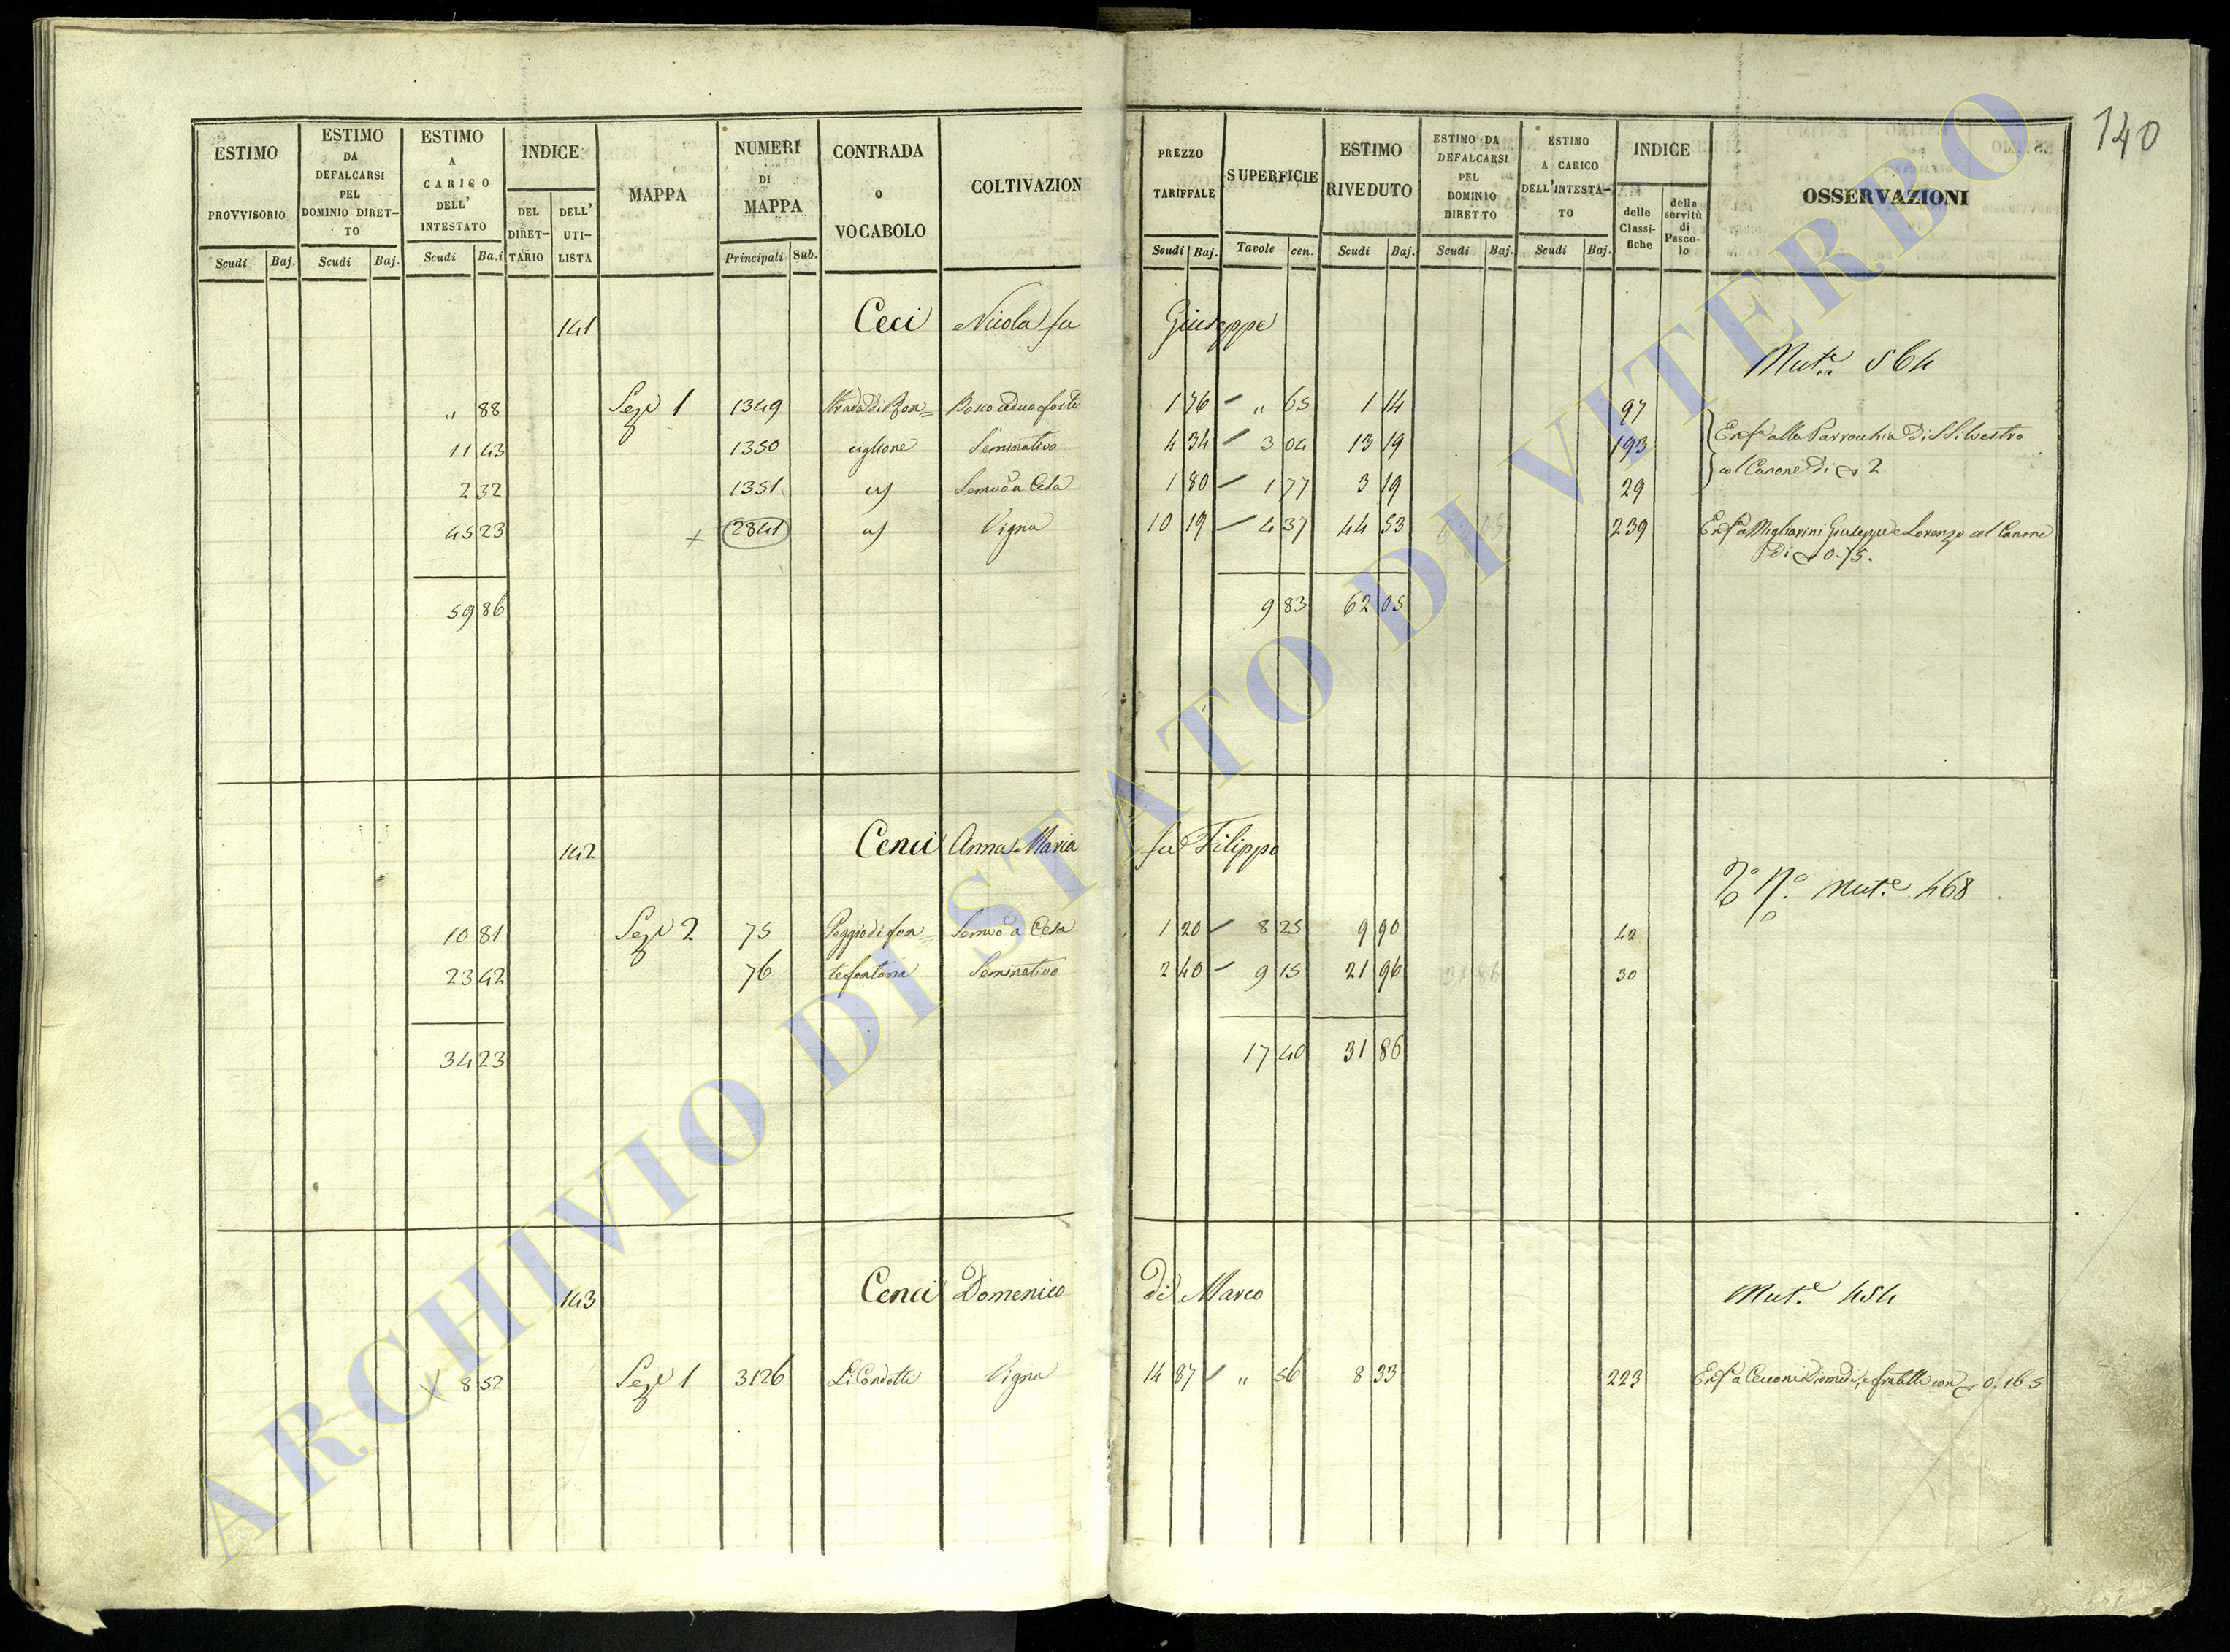 140
ESTIMO PROVVISORIO Scudi Baj.
ESTIMO DA DEFALCARSI PEL DOMINIO DIRETTO Scudi Baj.
ESTIMO A CARICO DELL' INTESTATO Scudi Ba.i
INDICE DEL DIRETTARIO DELL' UTILISTA
MAPPA
NUMERI DI MAPPA Principali Sub.
CONTRADA O VOCABOLO
COLTIVAZION
PREZZO TARIFFALE Scudi Baj.
SUPERFICIE Tavole cen.
ESTIMO RIVEDUTO Scudi Baj.
ESTIMO DA DEFALCARSI PEL DOMINIO DIRETTO Scudi Baj.
ESTIMO A CARICO DELL'INTESTATO Scudi Baj.
INDICE delle Classifiche della servitù di Pascolo
OSSERVAZIONI
141 Ceci Nicola fu Giuseppe
Mut.e 564
" 88 Sez.e 1 1349 Strada di Ron= Bosco ceduo forte 1 76 " 65 1 14 97
11 43 1350 ciglione Seminativo 4 34 3 04 13 19 193 Enf.a alla Parrocchia di S Silvestro
2 32 1351 Semvo a Cesa 1 80 1 77 3 19 29 col Canone di 2
45 23 + 2841 Vigna 10 19 4 37 44 53 239 Enf.a a Migliorini Giuseppe e Lorenzo col Canone
di 0.75.
59 86 9 83 62 05
142 Cenci Anna Maria fu Filippo
Mut.e 468
10 81 Sez.e 2 75 Poggio di fon= Semvo a Cesa 1 20 8 25 9 90 42
23 42 76 tefontana Seminativo 2 40 9 15 21 96 31 86 30
34 23 17 40 31 86
143 Cenci Domenico di Marco
Mut.e 454
8 52 Sez.e 1 3126 Li Condotti Vigna 14 87 " 56 8 33 223 Enf.a a Cecconi Diomede, e fratelli con 0.16.5
ARCHIVIO DI STATO DI VITERBO